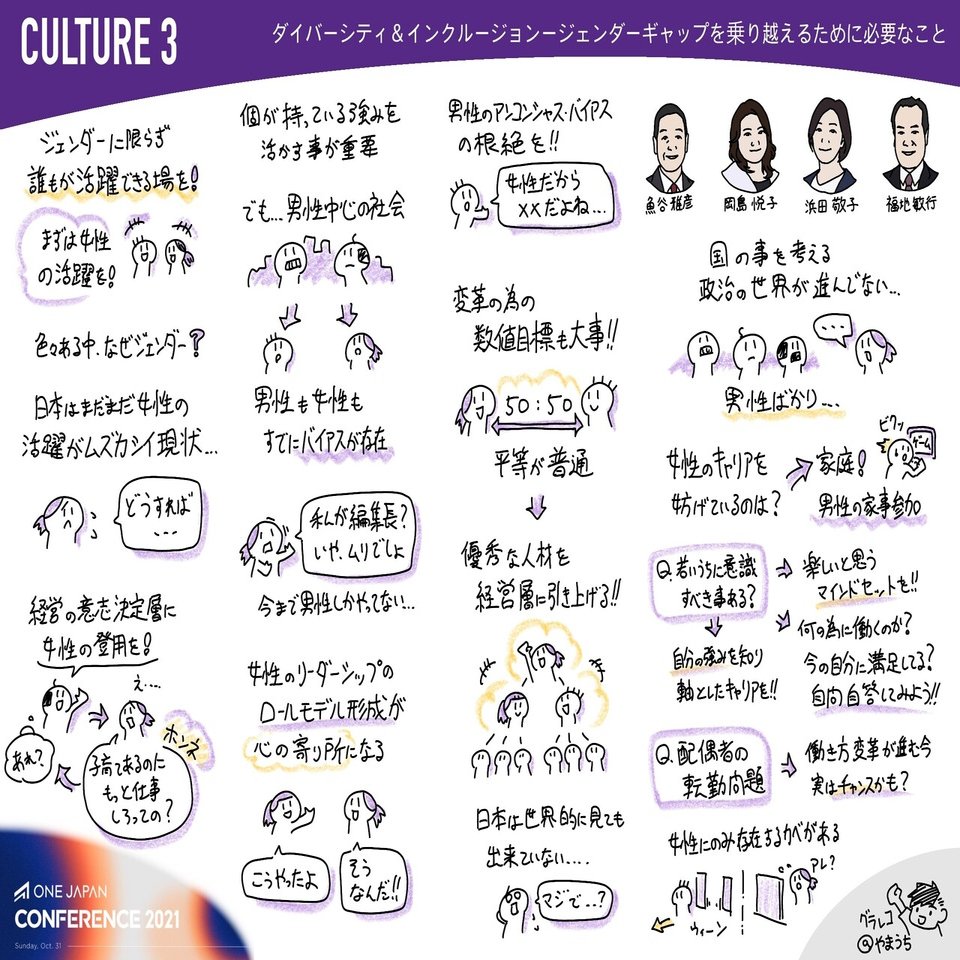 CULTURE 3
ダイバーシティ＆インクルージョンージェンダーギャップを乗り越えるために必要なこと
ジェンダーに限らず
誰もが活躍できる場を!
まずは女性
の活躍を!
色々ある中、なぜジェンダー?
日本はまだまだ女性の
活躍がムズカシイ現状...
どうすれば
...
経営の意志決定層に
女性の登用を!
え....
あれ?
ホンネ
子育てあるのに
もっと仕事
しろっての?
個が持っている強みを
活かす事が重要
でも...男性中心の社会
男性も女性も
すでにバイアスが存在
私が編集長?
いや、ムリでしょ
今まで男性しかやってない...
女性のリーダーシップの
ロールモデル形成が
心の寄り所になる
こうやったよ
そう
なんだ!!
男性のアンコンシャス・バイアス
の根絶を!!
女性だから
××だよね...
変革の為の
数値目標も大事!!
50:50
平等が普通
優秀な人材を
経営層に引き上げる!!
日本は世界的に見ても
出来ていない....
マジで..?
魚谷雅彦
岡島悦子
浜田敬子
福地敏行
国の事を考える
政治の世界が進んでない...
...
男性ばかり...
女性のキャリアを
妨げているのは?
家庭!
男性の家事参加
ビクッ
ゲーム
Q.若いうちに意識
すべき事ある?
楽しいと思う
マインドセットを!!
自分の強みを知り
軸としたキャリアを!!
何の為に働くのか?
今の自分に満足してる?
自問自答してみよう!!
Q.配偶者の
転勤問題
働き方変革が進む今
実はチャンスかも?
女性にのみ存在するカベがある
ウィーン
アレ?
ONE JAPAN
CONFERENCE 2021
Sunday, Oct. 31
グラレコ
@やまうち